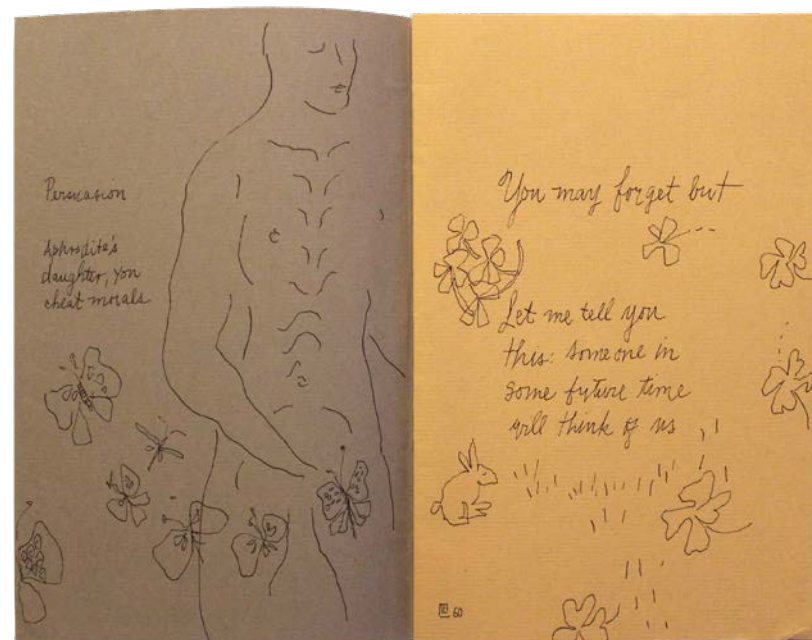 Persuasion
Aphrodite's
daughter, you
cheat morals
You may forget but
Let me tell you
this: someone in
some future time
will think of us
60